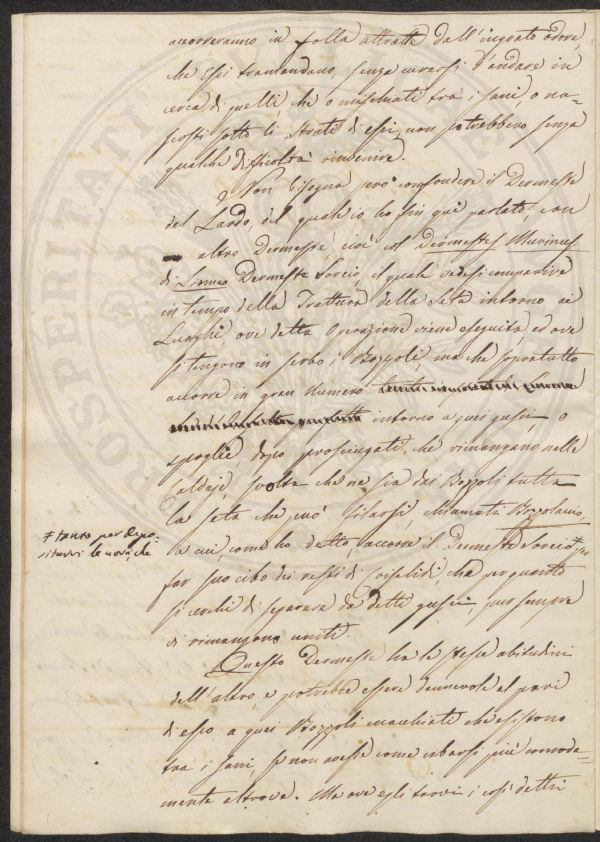 accorreranno in folla attratte dall'ingrato odore,
che essi tramandano, senza curarsi d'andare in
cerca di quelli, che o mischiati tra i sani, o na-
scosti sotto li strati di essi, non potrebbero senza
qualche difficoltà rinvenire.
Non bisogna però confondere il Dermeste
del Lardo, del quale io ho fin quì parlato, con
altro Dermeste, cioè col Dermestes Murinus
di Linneo Dermeste Sorcio, il quale vedesi comparire
in tempo della Trattura della Seta intorno ai
Luoghi ove detta Operazione viene eseguita, ed ove
si tengono in serbo i Bozzoli, ma che sopratutto
accorre in gran numero
intorno a quei gusci o
spoglie, dopo prosciugati, che rimangano nelle
Caldaje, svolta che ne sia dai Bozzoli tutta
la seta che può filarsi, chiamati Bozzolacci,
a cui come ho detto accorre il Dermeste Sorcio # per
# tanto per depo-
sitarvi le uova, che
far suo cibo dei resti di Crisalidi, che per quanto
si cerchi di separare da detti gusci, pur sempre
vi rimangono uniti.
Questo Dermeste ha le stesse abitudini
dell'altro, e potrebbe essere dannevole al pari
di esso, a quei Bozzoli macchiati che esistono
tra i sani se non avesse come cibarsi più comoda-
mente altrove. Ma ove egli trovi i così detti